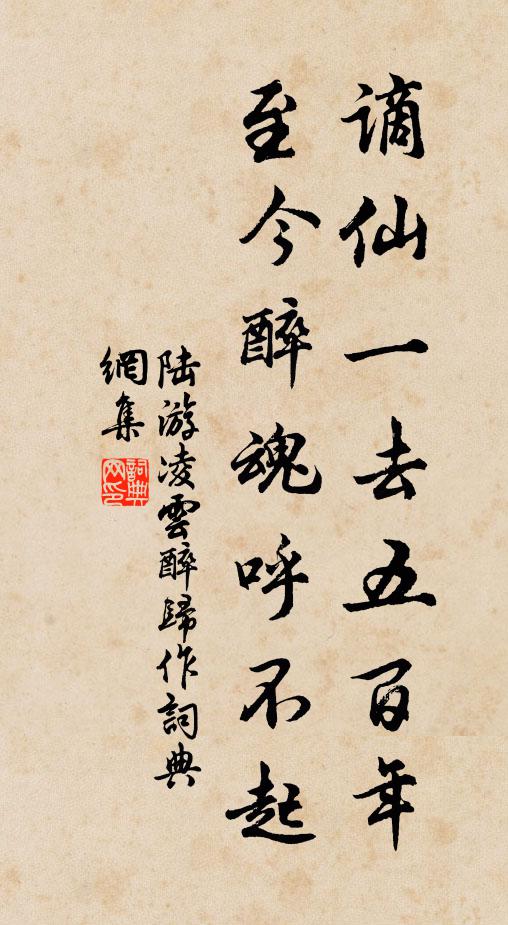 谪仙一去五百年
至今醉魂呼不起
陆游凌雲醉歸作詞典
網集
詞典网印